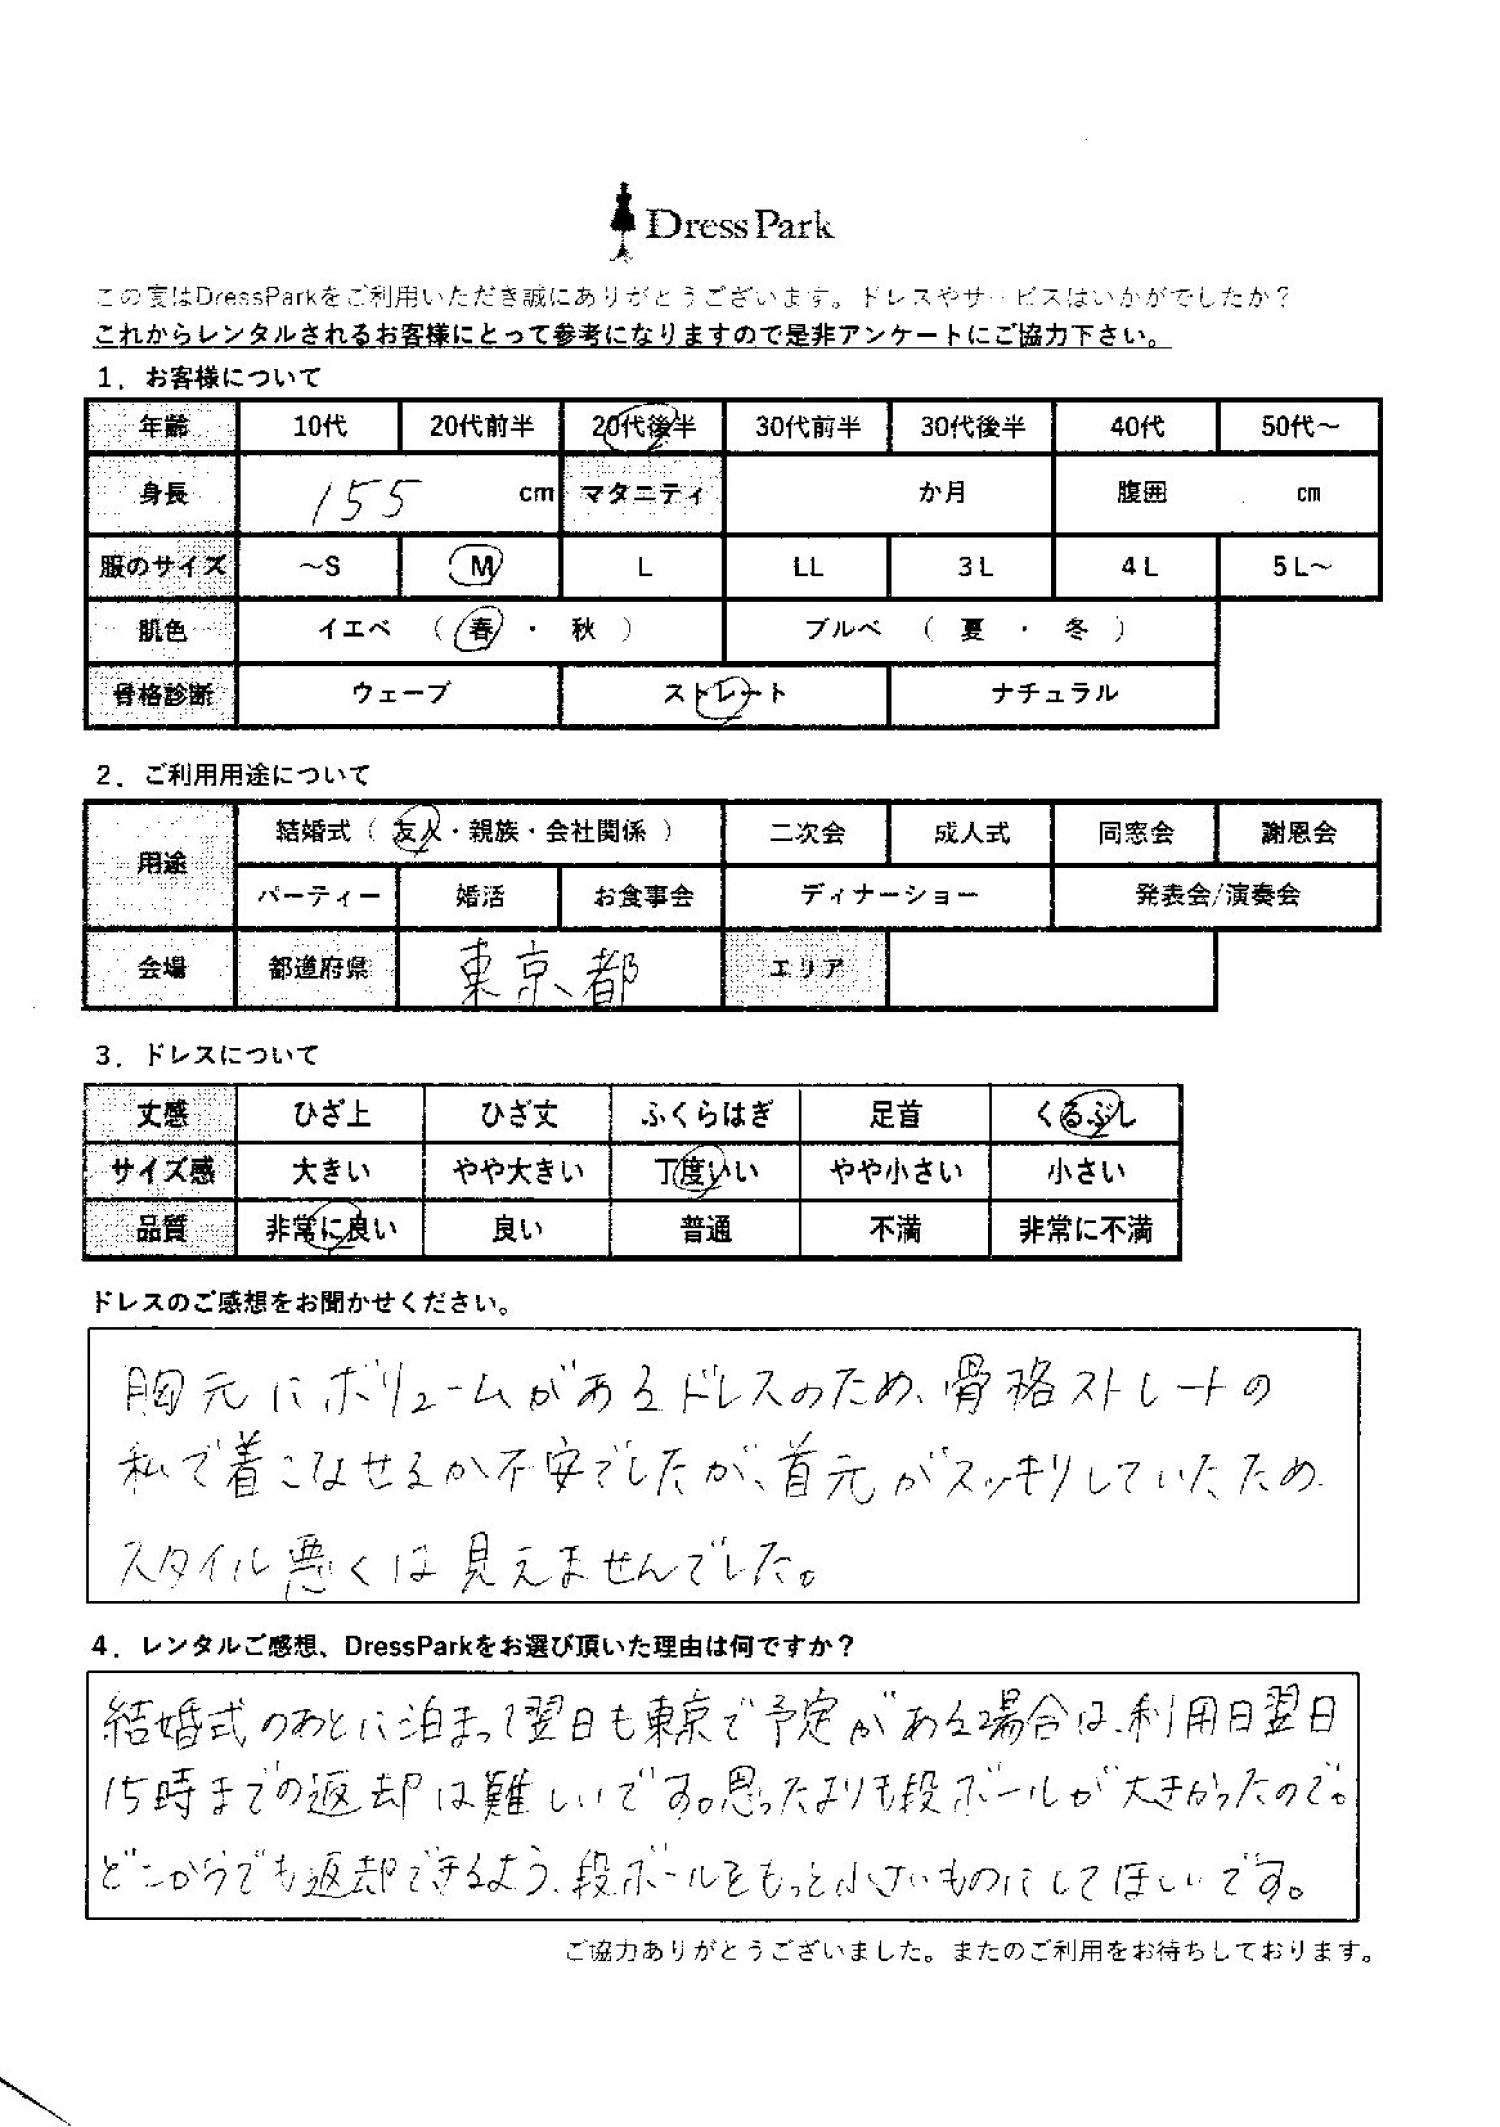 Dress Park
この度はDressParkをご利用いただき誠にありがとうございます。ドレスやサービスはいかがでしたか？
これからレンタルされるお客様にとって参考になりますので是非アンケートにご協力下さい。
1．お客様について
年齢 10代 20代前半 20代後半 30代前半 30代後半 40代 50代～
身長 155 cm マタニティ か月 腹囲 cm
服のサイズ ～S M L LL 3L 4L 5L～
肌色 イエベ （ 春 ・ 秋 ） ブルベ （ 夏 ・ 冬 ）
骨格診断 ウェーブ ストレート ナチュラル
2．ご利用用途について
用途 結婚式（ 友人・親族・会社関係 ） 二次会 成人式 同窓会 謝恩会
パーティー 婚活 お食事会 ディナーショー 発表会/演奏会
会場 都道府県 東京都 エリア
3．ドレスについて
丈感 ひざ上 ひざ丈 ふくらはぎ 足首 くるぶし
サイズ感 大きい やや大きい 丁度いい やや小さい 小さい
品質 非常に良い 良い 普通 不満 非常に不満
ドレスのご感想をお聞かせください。
胸元にボリュームがあるドレスのため、骨格ストレートの
私で着こなせるか不安でしたが、首元がスッキリしていたため
スタイル悪くは見えませんでした。
4．レンタルご感想、DressParkをお選び頂いた理由は何ですか？
結婚式のあとに泊まって翌日も東京で予定がある場合は、利用日翌日
15時までの返却は難しいです。思ったよりも段ボールが大きかったので。
どこからでも返却できるよう、段ボールをもっと小さいものにしてほしいです。
ご協力ありがとうございました。またのご利用をお待ちしております。